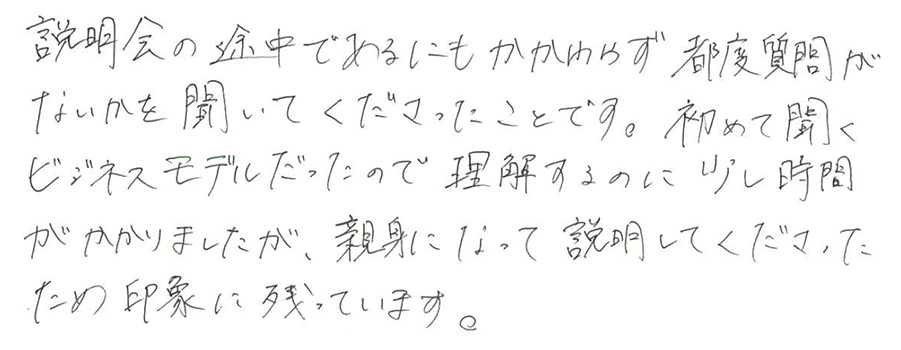 説明会の途中であるにもかかわらず都度質問が
ないかを聞いてくださったことです。初めて聞く
ビジネスモデルだったので理解するのに少し時間
がかかりましたが、親身になって説明してくださった
ため印象に残っています。